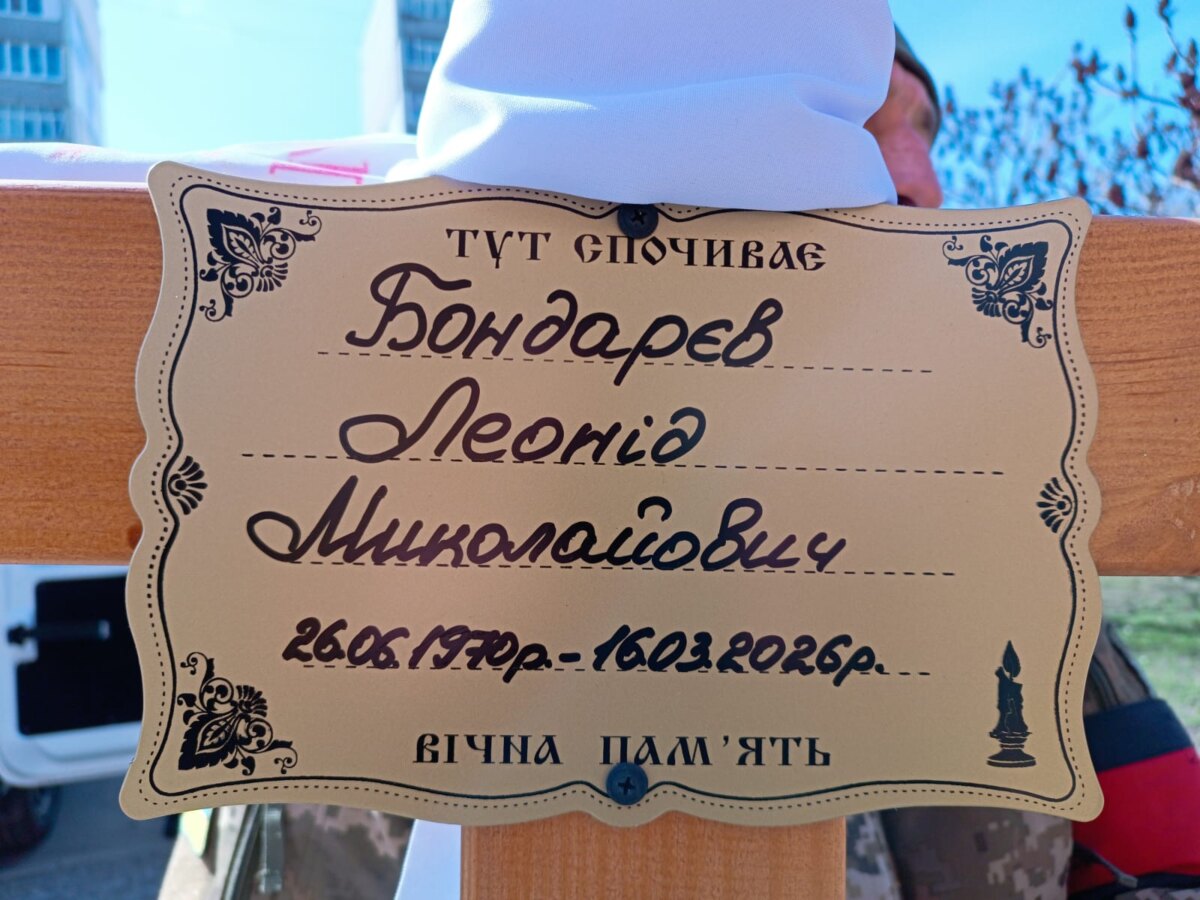 ТУТ СПОЧИВАЄ
Бондарєв
Леонід
Миколайович
26.06.1970р.-16.03.2026р.
ВІЧНА ПАМ'ЯТЬ